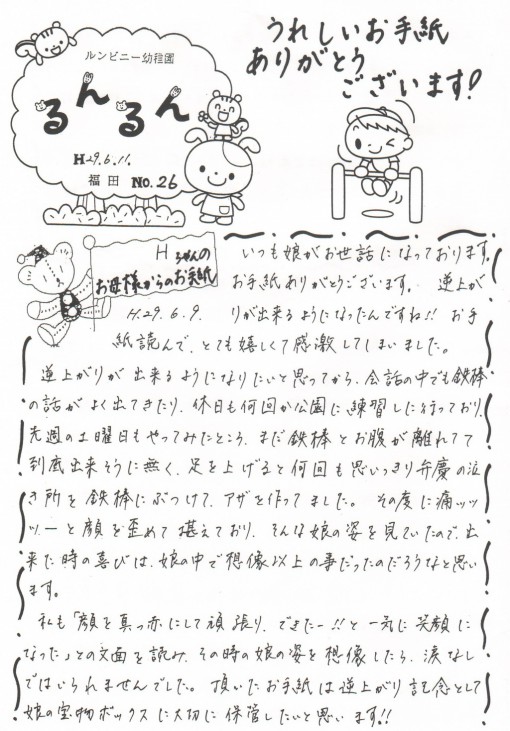 うれしいお手紙
ありがとう
ございます!
ルンビニー幼稚園
るんるん
H29.6.11.
福田 No.26
Hちゃんの
お母様からのお手紙
H.29.6.9.
いつも娘がお世話になっております。
お手紙ありがとうございます。 逆上が
りが出来るようになったんですね!! お手
紙読んで、とても嬉しくて感激してしまいました。
逆上がりが出来るようになりたいと思ってから、会話の中でも鉄棒
の話がよく出てきたり、休日も何回か公園に練習しに行っており、
先週の土曜日もやってみたところ、まだ鉄棒とお腹が離れてて
到底出来そうに無く、足を上げると何回も思いっきり弁慶の泣
き所を鉄棒にぶつけて、アザを作ってました。 その度に痛ッッ
ッーと顔を歪めて堪えており、そんな娘の姿を見ていたので、出
来た時の喜びは、娘の中で想像以上の事だったのだろうなと思い
ます。
私も「顔を真っ赤にして頑張り、できたー!!と一気に笑顔に
なった」との文面を読み、その時の娘の姿を想像したら、涙なし
ではいられませんでした。 頂いたお手紙は逆上がり記念として
娘の宝物ボックスに大切に保管したいと思います!!